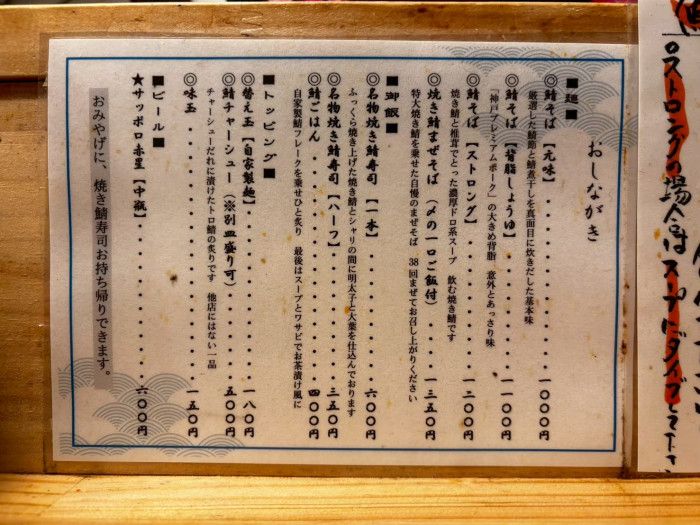 おしながき
■麺■
◎鯖そば【元味】・・・・・・・・・一〇〇〇円
厳選した鯖節と鯖煮干しを真面目に炊きだした基本味
◎鯖そば【背脂しょうゆ】・・・・・・一一〇〇円
「神戸プレミアムポーク」の大きめ背脂 意外とあっさり味
◎鯖そば【ストロング】・・・・・・・一二〇〇円
焼き鯖と椎茸でとった濃厚ドロ系スープ 飲む焼き鯖です
◎焼き鯖まぜそば(〆の一口ご飯付)・・・一三五〇円
特大焼き鯖を乗せた自慢のまぜそば 38回まぜてお召し上がりください
■御飯■
◎名物焼き鯖寿司【一本】・・・・・・六〇〇円
ふっくら焼き上げた焼き鯖とシャリの間に明太子と大葉を仕込んでおります
◎名物焼き鯖寿司【ハーフ】・・・・・三五〇円
◎鯖ごはん・・・・・・・・・・・四〇〇円
自家製鯖フレークを乗せひと炙り 最後はスープとワサビでお茶漬け風に
■トッピング■
◎替え玉【自家製麺】・・・・・・・・一八〇円
◎鯖チャーシュー(※別皿盛り可)・・・・五〇〇円
チャーシューだれに漬けたトロ鯖の炙りです 他店にはない一品
◎味玉・・・・・・・・・・・・・一五〇円
■ビール■
★サッポロ赤星【中瓶】・・・・・・・六〇〇円
おみやげに、焼き鯖寿司お持ち帰りできます。
◎ストロングの場合はスープにダイブして下さ